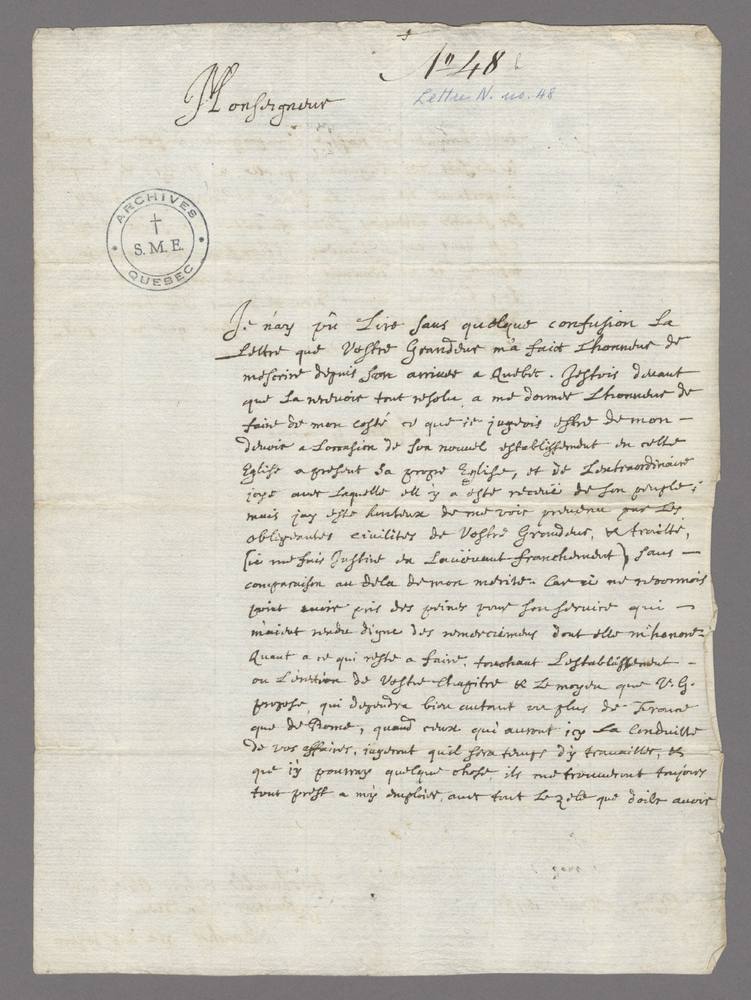 No 48
Lettre N. no. 48
Monseigneur
ARCHIVES
S. M. E.
QUEBEC
Je n'ay pû Lire sans quelque confusion La
Lettre que Vostre Grandeur m'a faict Lhonneur de
mescrire depuis son arrivee a Quebec. Jestois devant
que La recevoir tout resolu a me donner Lhonneur de
faire de mon costé ce que ie jugeois estre de mon –
devoir a Loccasion de son nouvel establissement en cette
Eglise a present sa propre Eglise, et de Lextraordinaire
joye avec Laquelle ell'y a esté receüe de son peuple;
mais jay esté honteux de me voir prevenu par Les
obligeantes civilites de Vostre Grandeur, & traitté,
(ie me fais Justice en Lavoüant franchement) sans –
comparaison au dela de mon merite. Car ie ne reconnois
point avoir pris des peines pour son service qui –
m'aient rendu digne des remerciemens dont elle m'honore.
Quant a ce qui reste a faire, touchant Lestablissement –
ou Lerection de Vostre Chapitre & Le moyen que V. G.
propose, qui dependra bien autant ou plus de France
que de Rome, quand ceux qui auront icy La Conduitte
de vos affaires, jugeront quil sera temps d'y travailler, &
que i'y pourray quelque chose, ils me trouveront toujours
tout prest a m'y emploier, avec tout Le zele que doibt avoir